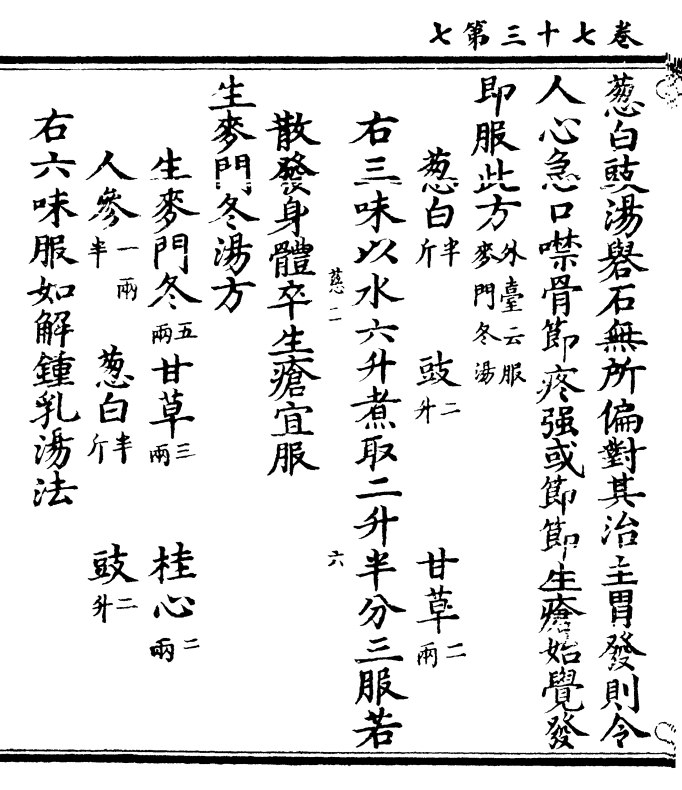 卷七十三第七
葱白豉湯礜石無所偏對其治主胃發則令
人心急口噤骨節疼强或節節生瘡始覺發
即服此方外臺云服麥門冬湯
葱白半斤 豉二升 甘草二兩
右三味以水六升煮取二升半分三服若
葱二 六
散發身體卒生瘡宜服
生麥門冬湯方
生麥門冬五兩 甘草三兩 桂心二兩
人參一兩半 葱白半斤 豉二升
右六味服如解鍾乳湯法